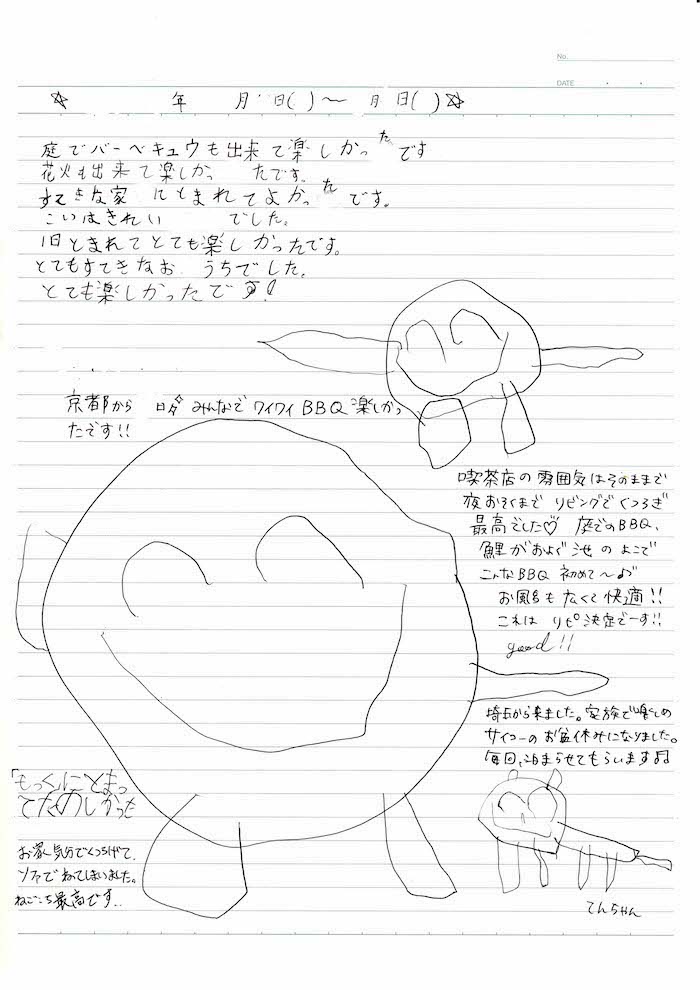 No.
DATE
☆ 年 月 日( )〜 月 日( )☆
庭でバーベキュウも出来て楽しかったです
花火も出来て楽しかったです。
すてきな家にとまれてよかったです。
こいはきれいでした。
1日とまれてとても楽しかったです。
とてもすてきなおうちでした。
とても楽しかったです!
京都から みんなでワイワイBBQ楽しかっ
たです!!
喫茶店の雰囲気はそのままで
夜おそくまでリビングでくつろぎ
最高でした♡ 庭でのBBQ、
鯉がおよぐ池のよこで
こんなBBQ初めて〜♪
お風呂も広くて快適!!
これはリピ決定でーす!!
good!!
埼玉から来ました。家族で楽しめ
サイコーのお盆休みになりました。
毎回、泊まらせてもらいます♫
「もっく」にとまっ
てたのしかった
お家気分でくつろげて、
ソファでねてしまいました。
ねごこち最高です..
てんちゃん